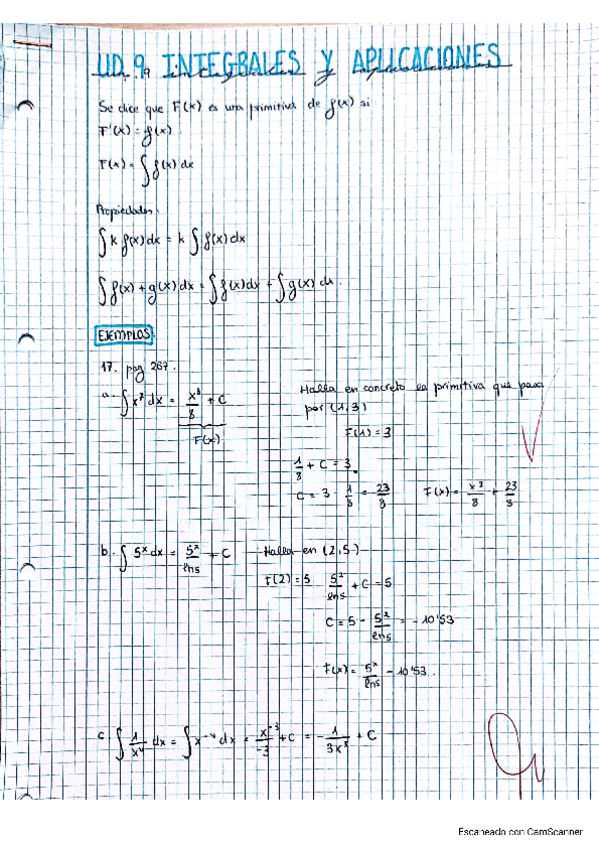 UD. 9. INTEGRALES Y APLICACIONES
Se dice que F(x) es una primitiva de f(x) si
F'(x) = f(x).
F(x) = ∫ f(x) dx
Propiedades:
∫ k f(x) dx = k ∫ f(x) dx
∫ f(x) + g(x) dx = ∫ f(x) dx + ∫ g(x) dx.
EJEMPLOS
17. pag 267.
a. ∫ x⁷ dx = x⁸/8 + C
F(x)
Halla en concreto la primitiva que pasa
por (1,3)
F(1) = 3
1/8 + C = 3.
C = 3 - 1/8 = 23/8 F(x) = x⁸/8 + 23/8
b. ∫ 5ˣ dx = 5ˣ/ln5 + C Halla en (2,5)
F(2) = 5 5²/ln5 + C = 5
C = 5 - 5²/ln5 = -10'53
F(x) = 5ˣ/ln5 - 10'53.
c. ∫ 1/x⁴ dx = ∫ x⁻⁴ dx = x⁻³/-3 + C = -1/3x³ + C
Escaneado con CamScanner